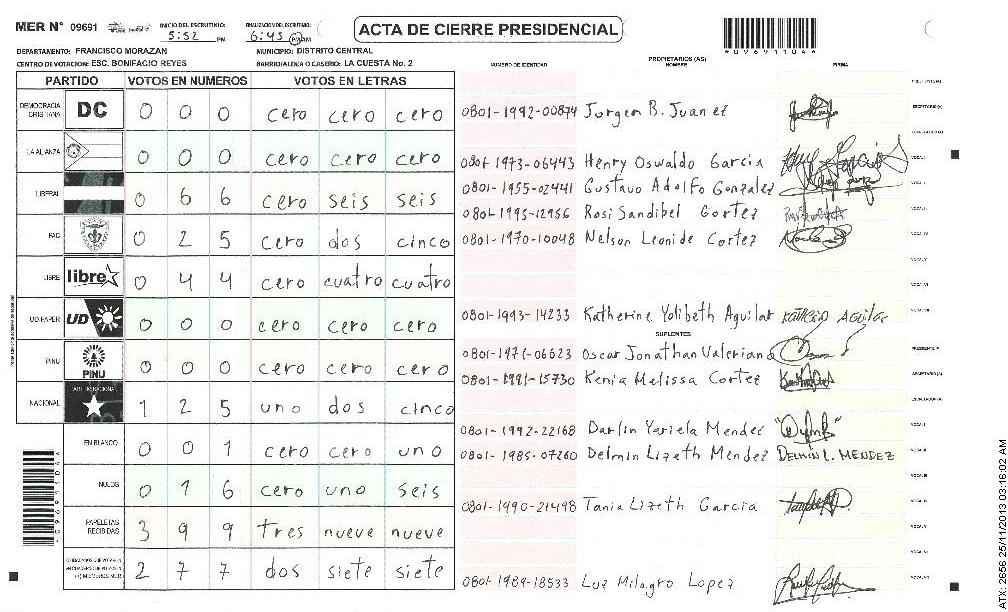 MER Nº 09691 INICIO DEL ESCRUTINIO: 5:52 PM FINALIZACION DEL ESCRUTINIO: 6:45 PM/AM ACTA DE CIERRE PRESIDENCIAL *09691104*
DEPARTAMENTO: FRANCISCO MORAZAN MUNICIPIO: DISTRITO CENTRAL
CENTRO DE VOTACION: ESC. BONIFACIO REYES BARRIO/ALDEA O CASERIO: LA CUESTA No. 2
PARTIDO VOTOS EN NUMEROS VOTOS EN LETRAS
DEMOCRACIA CRISTIANA DC 0 0 0 cero cero cero
LA ALIANZA 0 0 0 cero cero cero
LIBERAL 0 6 6 cero seis seis
PAC 0 2 5 cero dos cinco
LIBRE libre 0 4 4 cero cuatro cuatro
UD/FAPER UD 0 0 0 cero cero cero
PINU PINU 0 0 0 cero cero cero
NACIONAL 1 2 5 uno dos cinco
EN BLANCO 0 0 1 cero cero uno
NULOS 0 1 6 cero uno seis
PAPELETAS RECIBIDAS 3 9 9 tres nueve nueve
2 7 7 dos siete siete
PROPIETARIOS (AS)
NUMERO DE IDENTIDAD NOMBRE FIRMA
0801-1992-00874 Jorgen B. Juanez SECRETARIO(A)
0801-1973-06443 Henry Oswaldo Garcia VOCAL I
0801-1955-02441 Gustavo Adolfo Gonzalez
0801-1995-12956 Rosi Sandibel Cortez
0801-1970-10048 Nelson Leonide Cortez VOCAL IV
VOCAL V
VOCAL VI
0801-1993-14233 Katherine Yolibeth Aguilar KATHERIN AGUILAR VOCAL VII
SUPLENTES
0801-1971-06623 Oscar Jonathan Valeriano PRESIDENTE(A)
0801-1991-15730 Kenia Melissa Cortez SECRETARIO(A)
0801-1992-22168 Darlin Yariela Mendez VOCAL I
0801-1985-07260 Delmin Lizeth Mendez DELMIN L. MENDEZ VOCAL II
VOCAL III
0801-1990-21498 Tania Lizeth Garcia VOCAL IV
VOCAL V
VOCAL VI
0801-1989-18533 Luz Milagro Lopez VOCAL VII
*09691104*
ATX: 2656 25/11/2013 03:16:02 AM